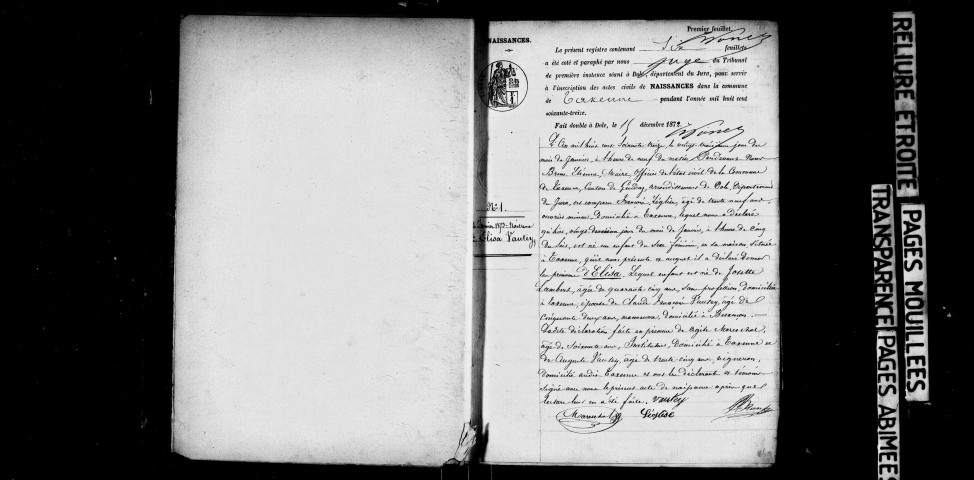 Premier feuillet.
NAISSANCES.
Le présent registre contenant six feuillets
a été coté et paraphé par nous juge du Tribunal
de première instance séant à Dole, département du Jura, pour servir
à l'inscription des actes civils de NAISSANCES dans la commune
de Taxenne pendant l'année mil huit cent
soixante-treize.
Fait double à Dole, le 15 décembre 1872.
L'an mil huit cent soixante treize, le vingt troisième jour du
mois de Janvier, à l'heure de neuf du matin Pardevant Nous
Étienne, Maire, Officier de l'état civil de la Commune
de Taxenne, Canton de Gendrey, arrondissement de Dole, Département
du Jura, est comparu âgé de trente neuf ans,
domicilié à Taxenne, lequel nous a déclaré
qu'hier, vingt deuxième jour du mois de Janvier, à l'heure de cinq
du soir, est né un enfant du sexe féminin, en sa maison située
à Taxenne, qu'il nous présente et auquel il a déclaré donner
le prénom d'Elisa. Lequel enfant est né de Josette
Lambert, âgée de quarante cinq ans, sans profession, domiciliée
à Taxenne, épouse de Claude Vautey, âgé de
cinquante deux ans, manœuvre, domicilié à Besançon.
Ladite déclaration faite en présence de Marechal,
âgé de soixante ans, Instituteur, domicilié à Taxenne et
de Auguste Vautey, âgé de trente cinq ans, vigneron,
domicilié audit Taxenne et ont le déclarant et témoins
signé avec nous le présent acte de naissance après que
lecture leur en a été faite. Vautey
Marechal Léglise
N° 1.
Janvier 1873 Naissance
Elisa Vautey
RELIURE ETROITE
PAGES MOUILLEES
TRANSPARENCE
PAGES ABIMEES